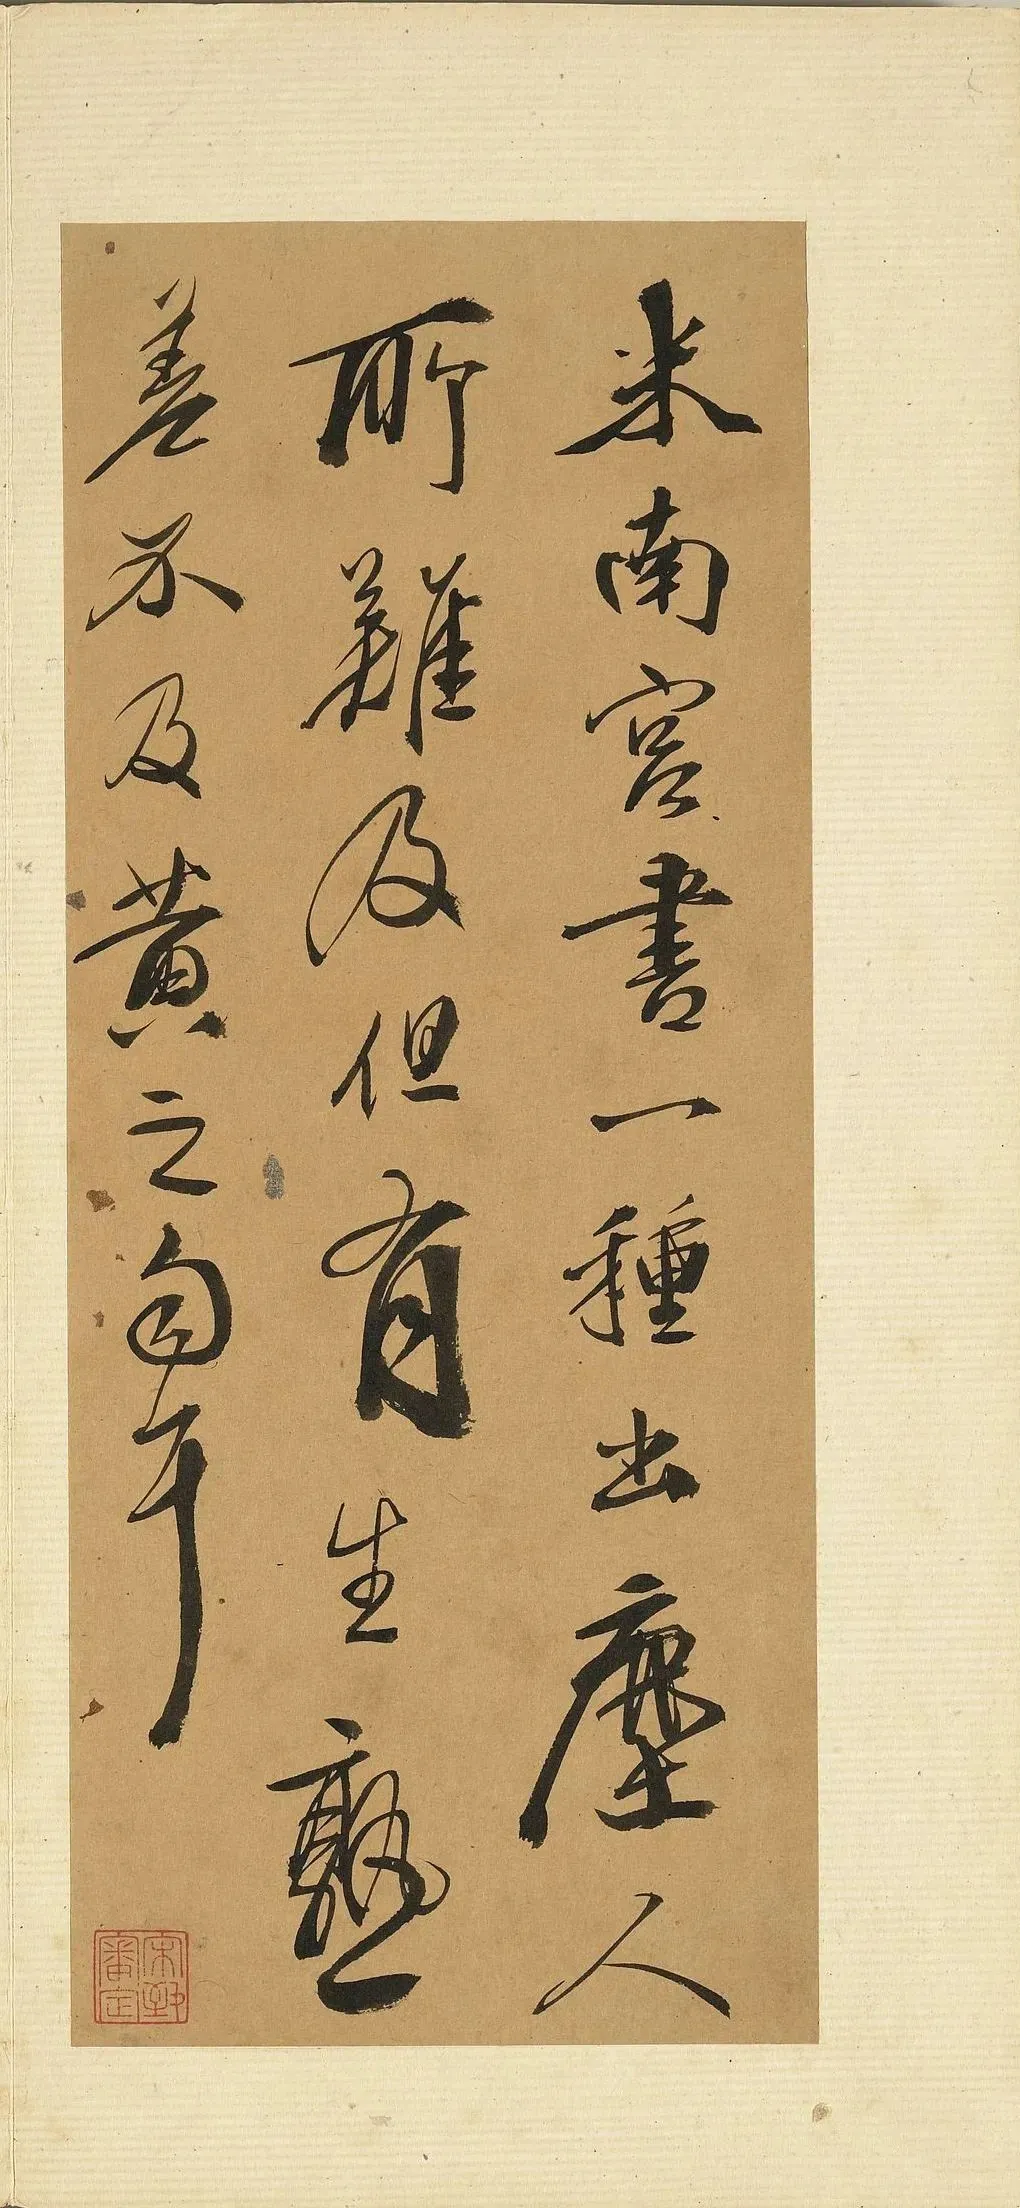 米南宮書一種出塵人
所難及但有生熟
差不及黃之勻耳
宋犖審定